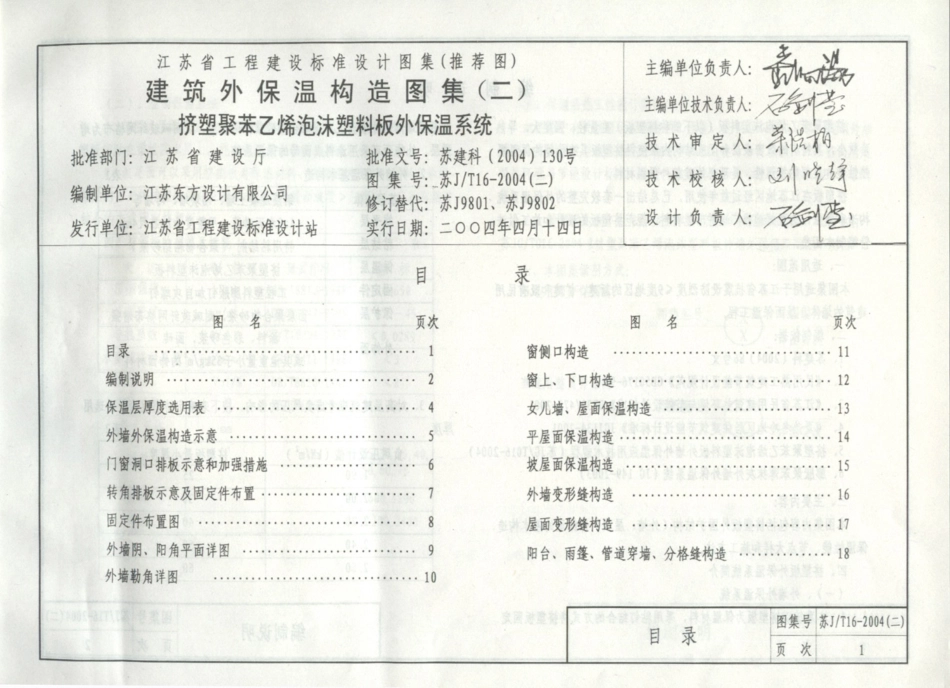 江苏省工程建设标准设计图集(推荐图)
建筑外保温构造图集(二)
挤塑聚苯乙烯泡沫塑料板外保温系统
批准部门：江苏省建设厅
批准文号：苏建科(2004)130号
编制单位：江苏东方设计有限公司
图集号：苏J/T16-2004(二)
修订替代：苏J9801、苏J9802
发行单位：江苏省工程建设标准设计站
实行日期：二〇〇四年四月十四日
主编单位负责人：
主编单位技术负责人：
技术审定人：
技术校核人：
设计负责人：
目 录
图 名 页次
目录 1
编制说明 2
保温层厚度选用表 4
外墙外保温构造示意 5
门窗洞口排板示意和加强措施 6
转角排板示意及固定件布置 7
固定件布置图 8
外墙阴、阳角平面详图 9
外墙勒角详图 10
图 名 页次
窗侧口构造 11
窗上、下口构造 12
女儿墙、屋面保温构造 13
平屋面保温构造 14
坡屋面保温构造 15
外墙变形缝构造 16
屋面变形缝构造 17
阳台、雨篷、管道穿墙、分格缝构造 18
目 录
图集号 苏J/T16-2004(二)
页次 1